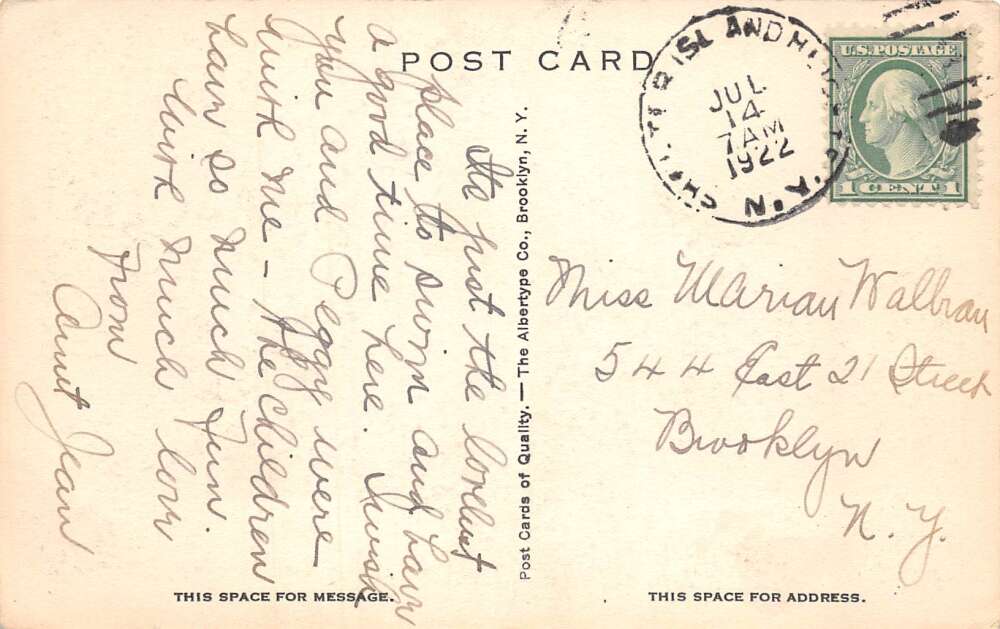 POST CARD
Its just the loveliest
place to swim and have
a good time here. I wish
you and Peggy were
with me - the children
have so much fun.
With much love
From
Aunt Jean
THIS SPACE FOR MESSAGE.
Post Cards of Quality. — The Albertype Co., Brooklyn, N. Y.
JUL
14
7 AM
1922
N.Y.
U.S. POSTAGE
1 CENT 1
Miss Marian Walbran
544 East 21 Street
Brooklyn
N. Y.
THIS SPACE FOR ADDRESS.